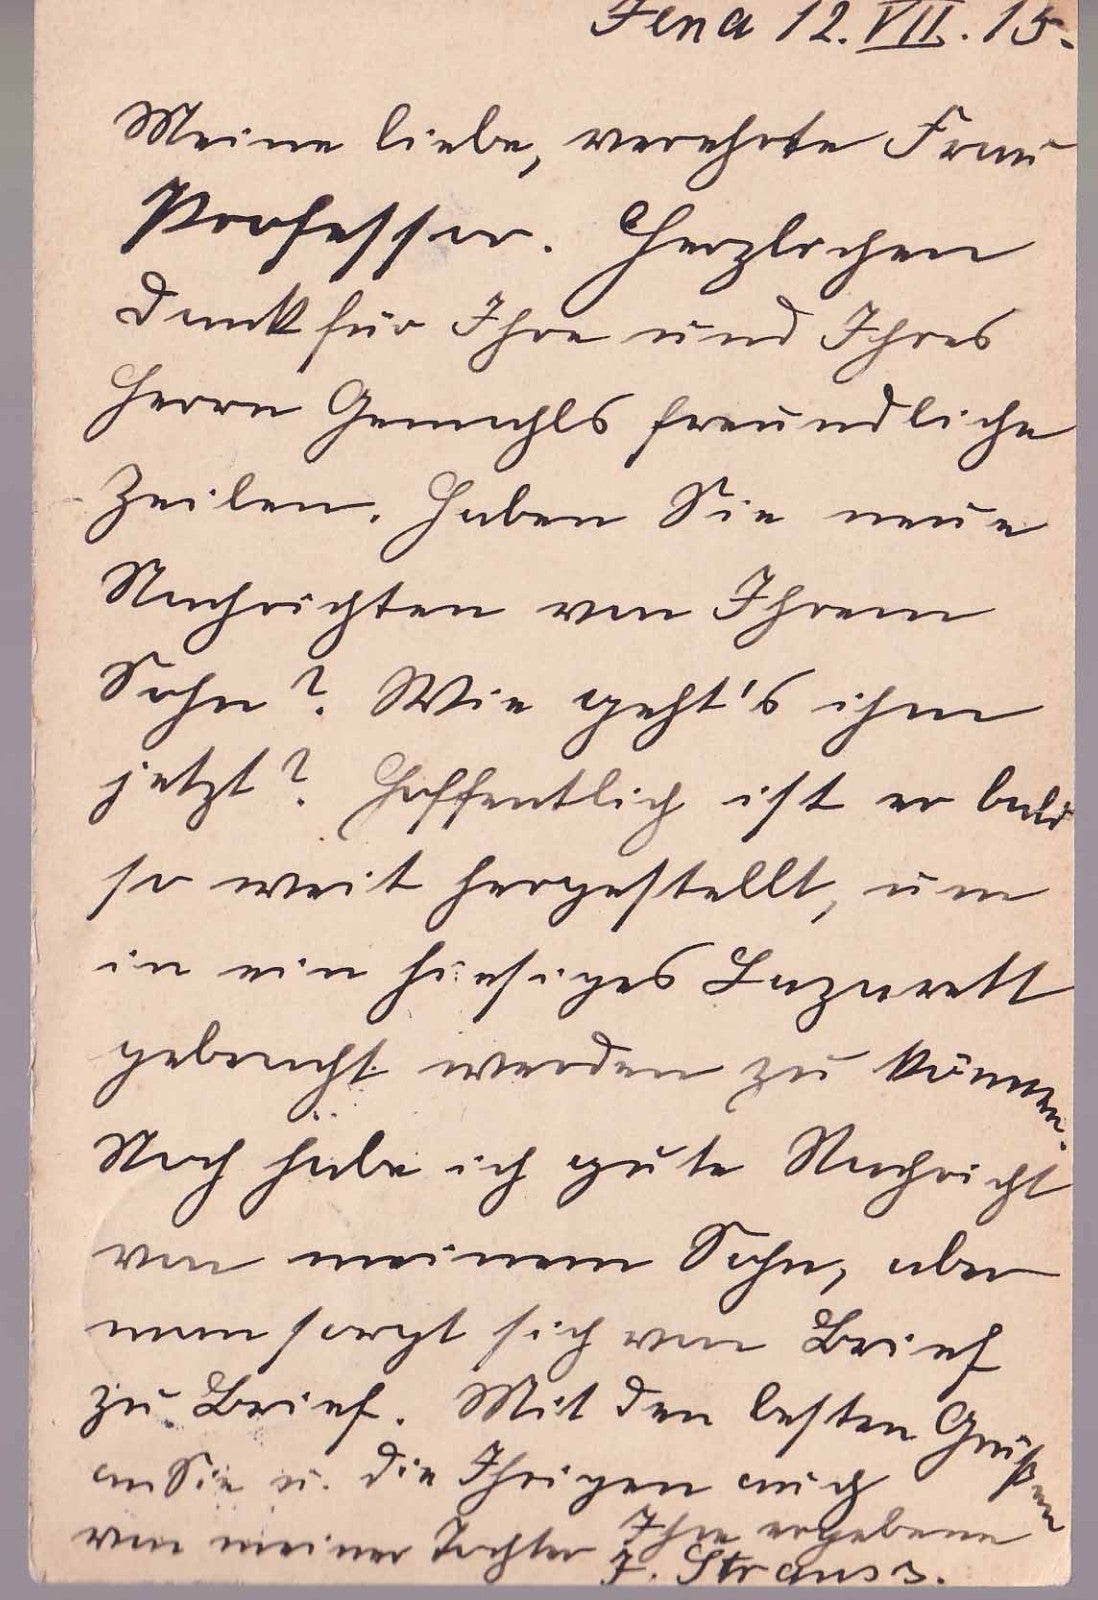 Jena 12. VII. 15.
Meine liebe, verehrte Frau
Professor. Herzlichen
Dank für Ihre und Ihres
Herrn Gemahls freundliche
Zeilen. Haben Sie neue
Nachrichten von Ihrem
Sohn? Wie geht's ihm
jetzt? Hoffentlich ist er bald
so weit hergestellt, um
in ein hiesiges Lazarett
gebracht werden zu können.
Noch habe ich gute Nachricht
von meinem Sohn, aber
man sorgt sich von Brief
zu Brief. Mit den besten Grüßen
an Sie u. die Ihrigen auch
von meiner Tochter Ihre ergebene
J. Strauss.